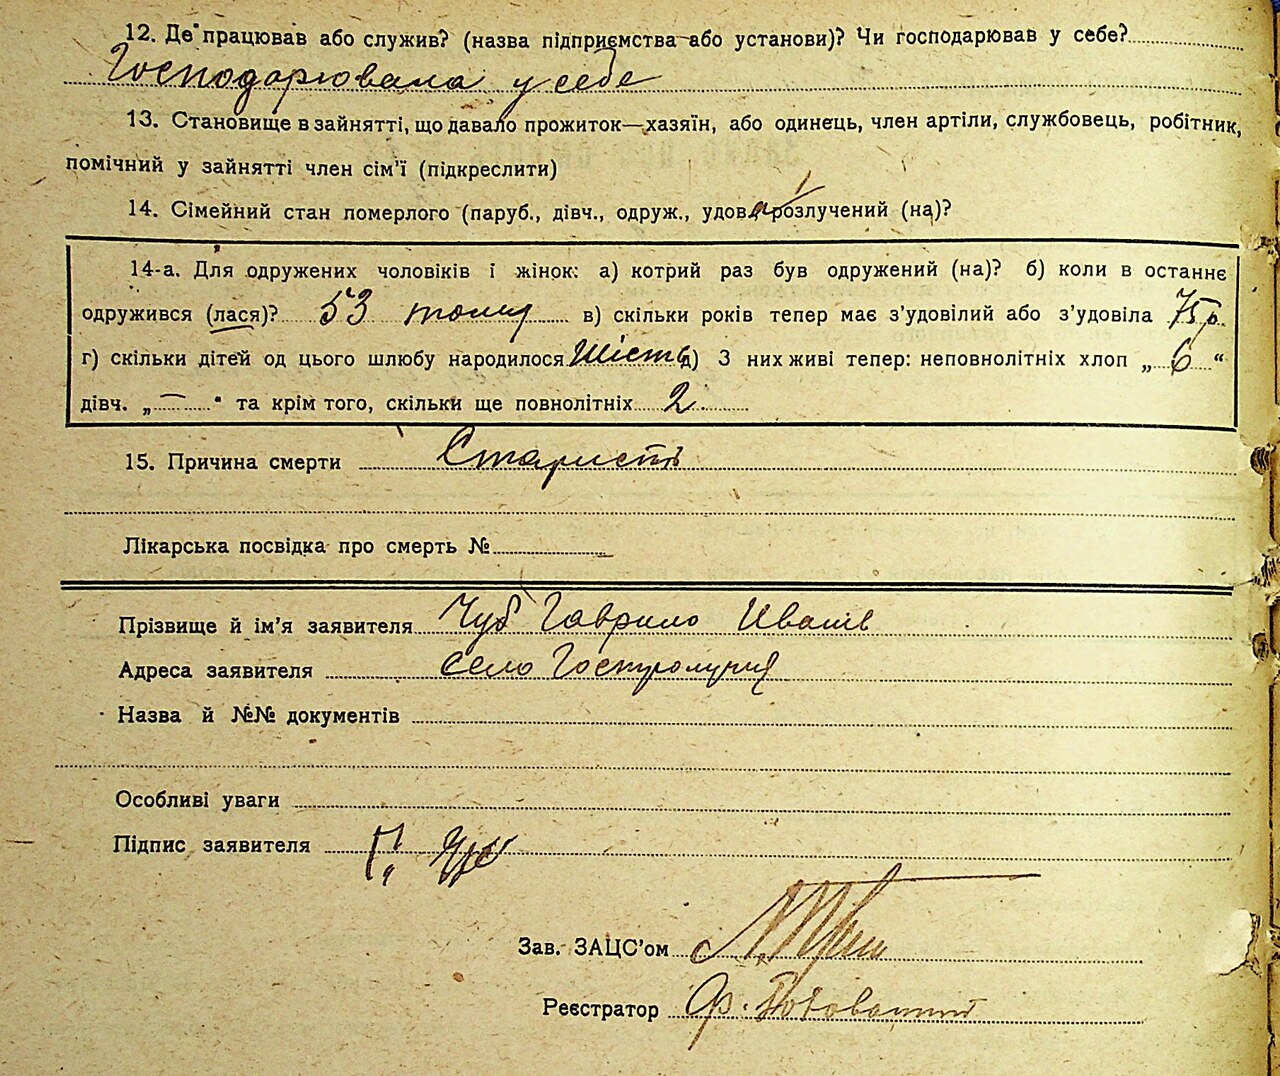 12. Де працював або служив? (назва підприємства або установи)? Чи господарював у себе?
Господарювала у себе
13. Становище в зайнятті, що давало прожиток—хазяїн, або одинець, член артіли, службовець, робітник,
помічний у зайнятті член сім'ї (підкреслити)
14. Сімейний стан померлого (паруб., дівч., одруж., удова розлучений (на)?
14-а. Для одружених чоловіків і жінок: а) котрий раз був одружений (на)? б) коли в останнє
одружився (лася)? 53 тому в) скільки років тепер має з'удовілий або з'удовіла 75 р.
г) скільки дітей од цього шлюбу народилося Шість д) З них живі тепер: неповнолітніх хлоп „ 6 “
дівч. „ — “ та крім того, скільки ще повнолітніх 2
15. Причина смерти Старість
Лікарська посвідка про смерть №
Прізвище й ім'я заявителя Чуб Гаврило Иванів
Адреса заявителя село Гостролуччя
Назва й №№ документів
Особливі уваги
Підпис заявителя Г. Чуб
Зав. ЗАЦС'ом
Реєстратор Ф.